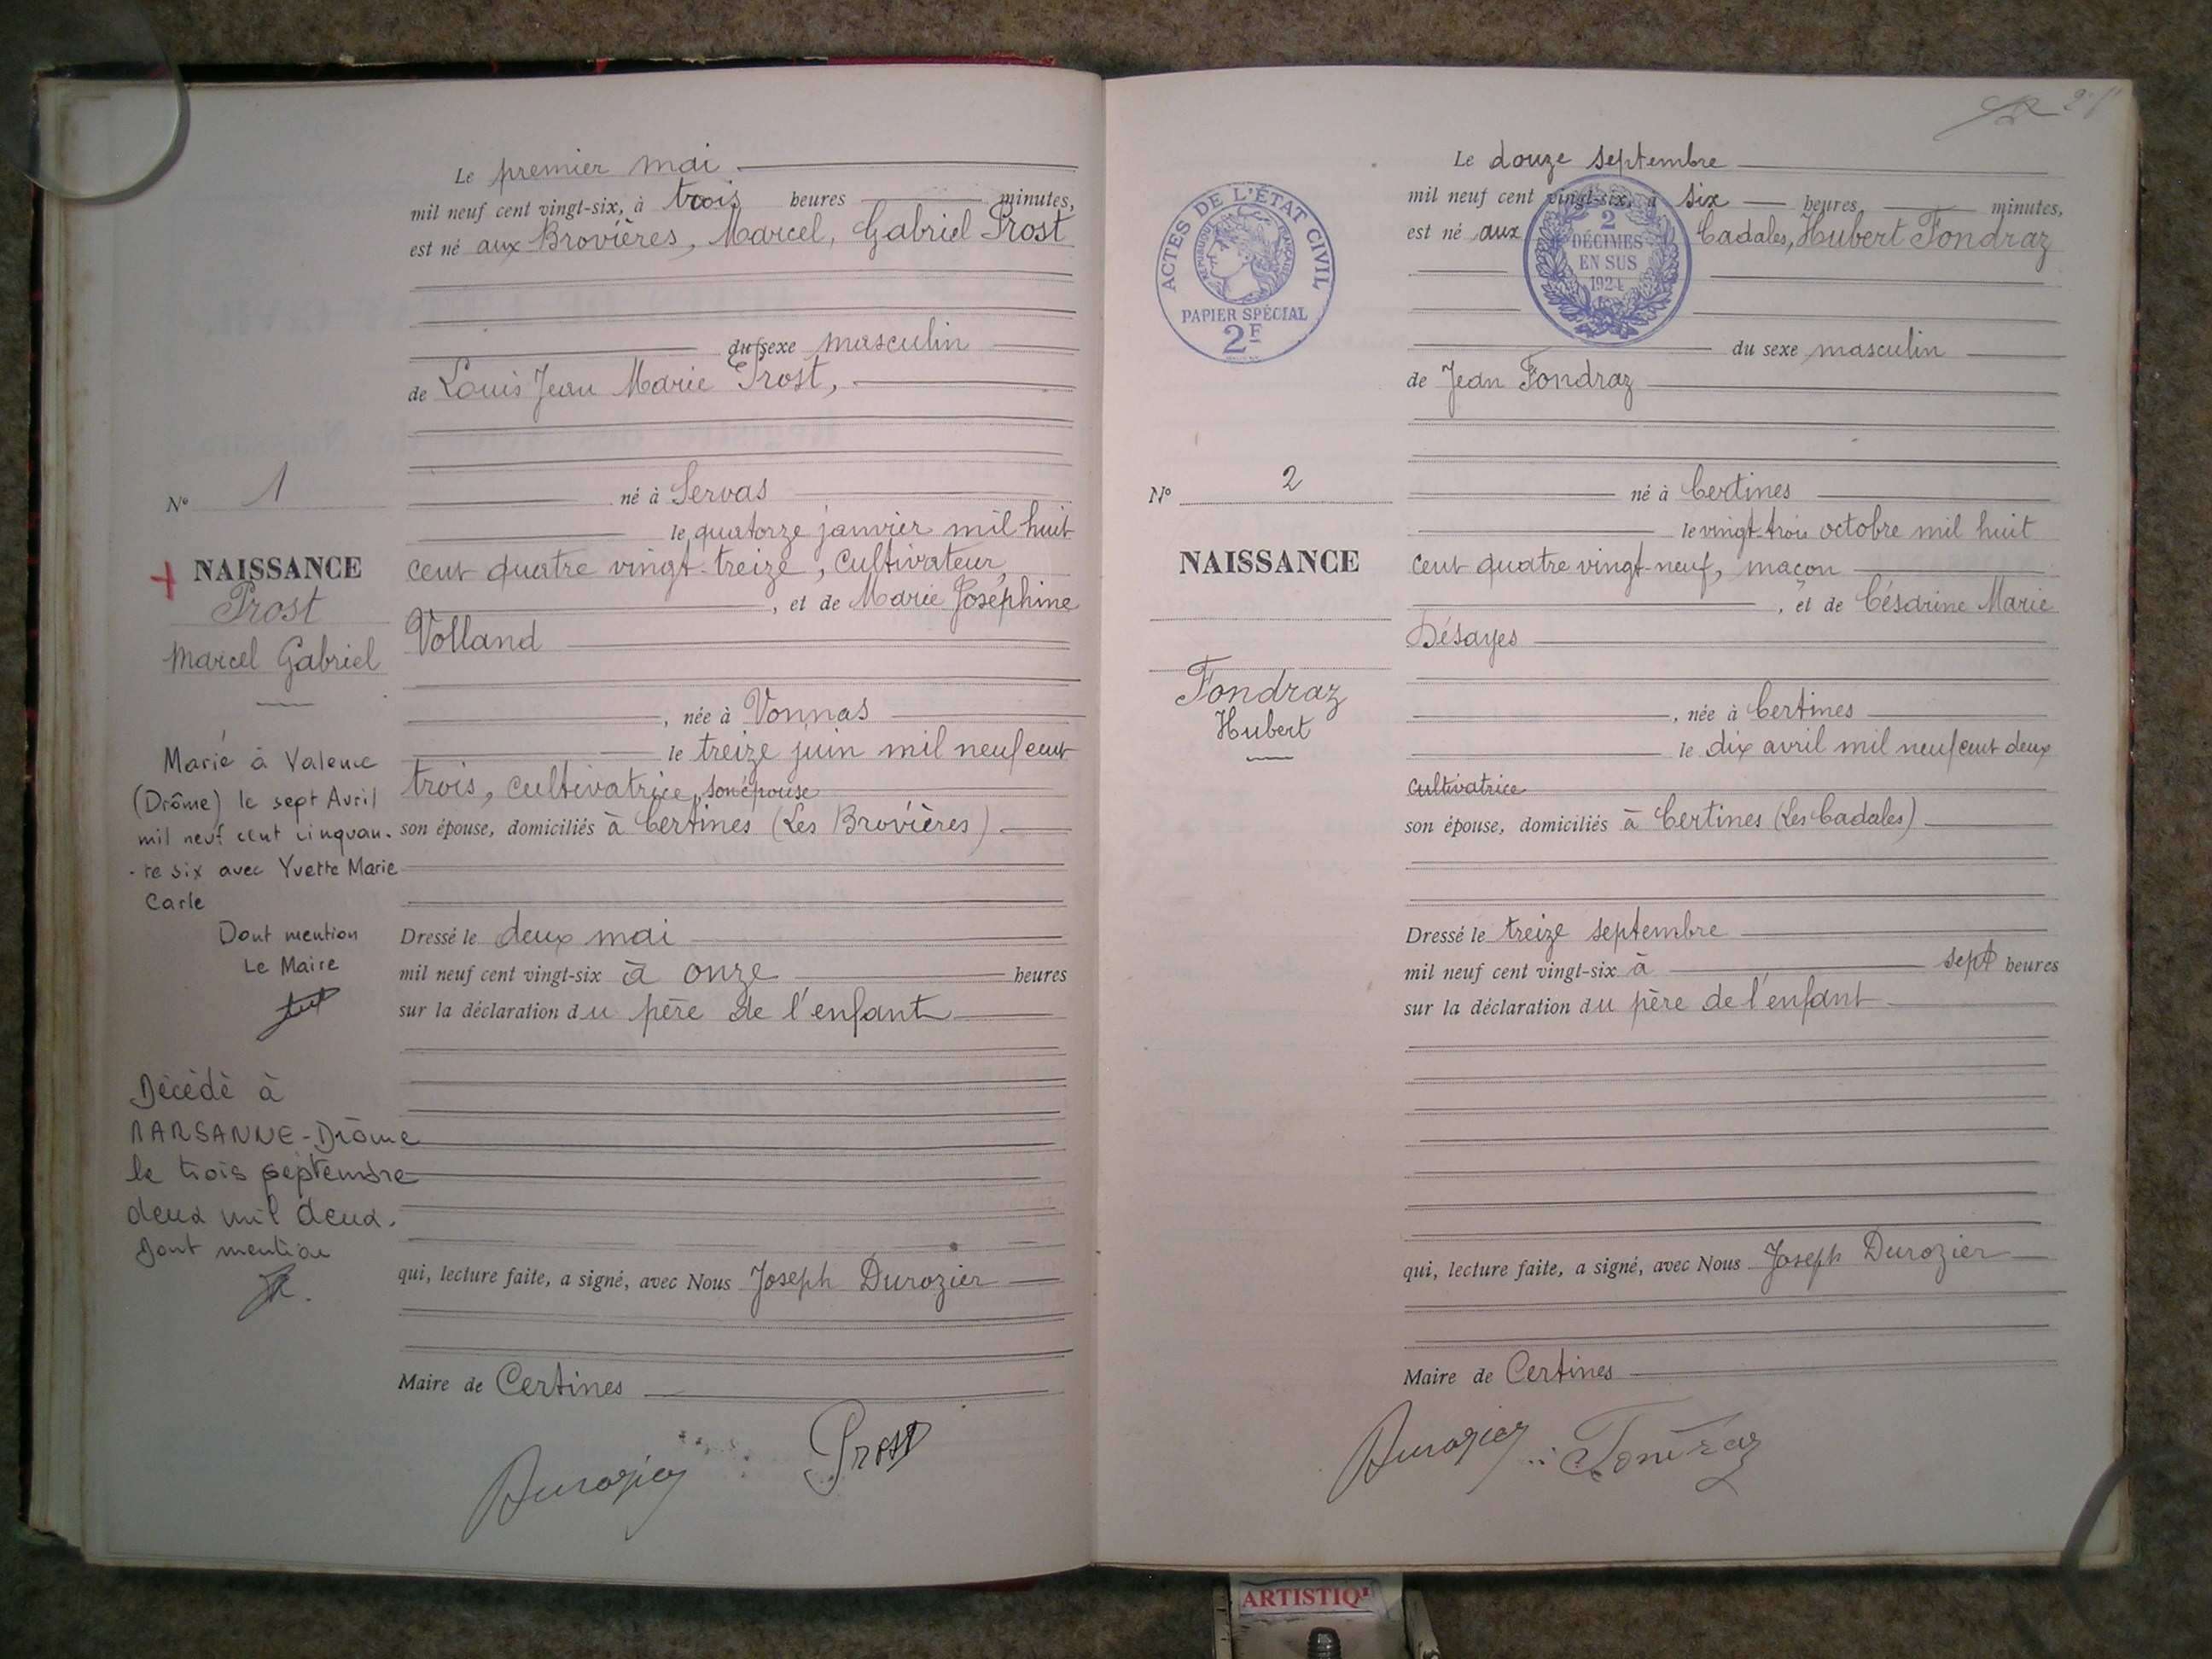 Le premier mai
mil neuf cent vingt-six, à trois heures minutes,
est né aux Brovières, Marcel, Gabriel Prost
du sexe masculin
de Louis Jean Marie Prost,
né à Servas
le quatorze janvier mil huit
cent quatre vingt-treize, cultivateur,
, et de Marie Joséphine
Volland
, née à Vonnas
le treize juin mil neuf cent
trois, cultivatrice, son épouse
son épouse, domiciliés à Certines (Les Brovières)
Dressé le deux mai
mil neuf cent vingt-six à onze heures
sur la déclaration du père de l'enfant
qui, lecture faite, a signé, avec Nous Joseph Durozier
Maire de Certines
Durozier Prost
N° 1
NAISSANCE
Prost
Marcel Gabriel
Marié à Valence
(Drôme) le sept Avril
mil neuf cent cinquan-
-te six avec Yvette Marie
Carle
Dont mention
Le Maire
Décédé à
MARSANNE-Drôme
le trois septembre
deux mil deux.
Dont mention
Le douze septembre
mil neuf cent vingt-six, à six heures minutes,
est né aux Cadales, Hubert Fondraz
du sexe masculin
de Jean Fondraz
né à Certines
le vingt-trois octobre mil huit
cent quatre vingt-neuf, maçon
, et de Césarine Marie
Désayes
, née à Certines
le dix avril mil neuf cent deux
cultivatrice
son épouse, domiciliés à Certines (Les Cadales)
Dressé le treize septembre
mil neuf cent vingt-six à sept heures
sur la déclaration du père de l'enfant
qui, lecture faite, a signé, avec Nous Joseph Durozier
Maire de Certines
Durozier Fondraz
ACTES DE L'ÉTAT CIVIL
RÉPUBLIQUE FRANÇAISE
PAPIER SPÉCIAL
2F
2
DÉCIMES
EN SUS
1924
N° 2
NAISSANCE
Fondraz
Hubert
ARTISTIQ